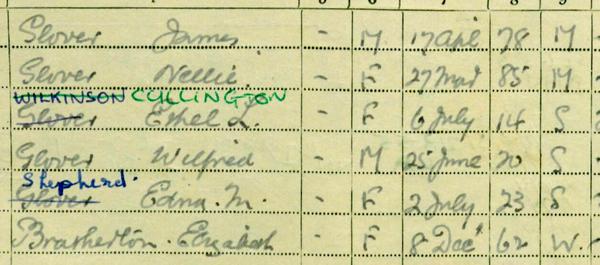 Glover James - M 17 Apl 78 M
Glover Nellie - F 27 Mar 85 M
WILKINSON CULLINGTON
Glover Ethel L. - F 6 July 14 S
Glover Wilfred - M 25 June 20 S
Shepherd.
Glover Edna. M. - F 2 July 23 S
Bratherton. Elizabeth - F 8 Dec 62 W.